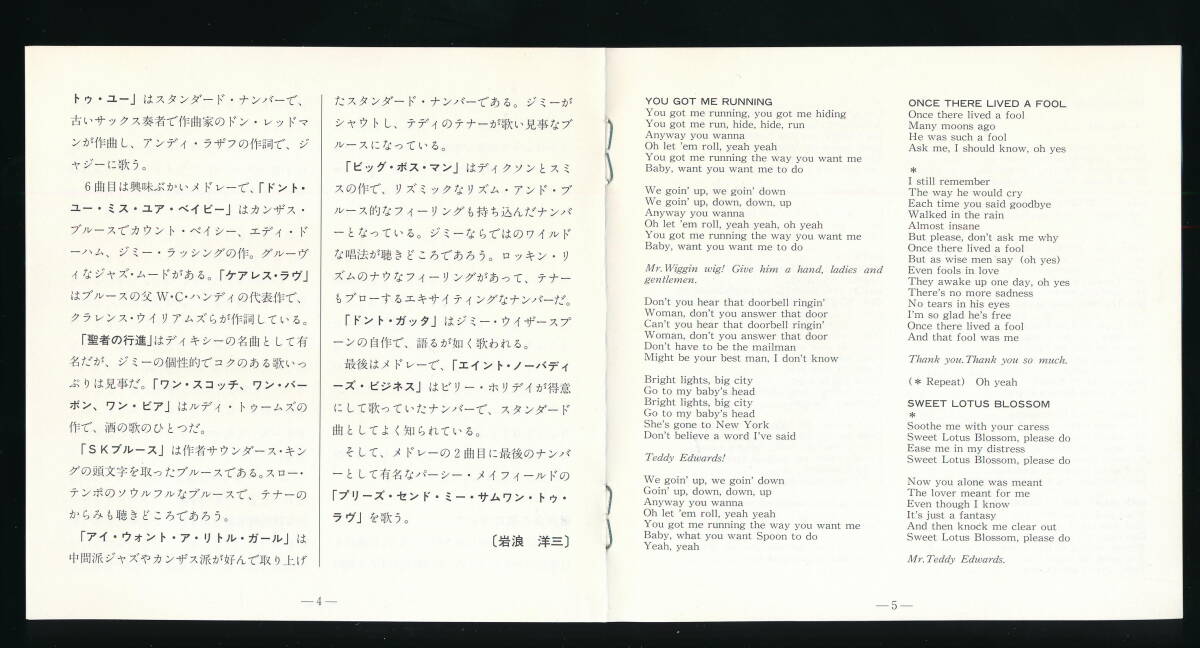 トゥ・ユー」はスタンダード・ナンバーで、
古いサックス奏者で作曲家のドン・レッドマ
ンが作曲し、アンディ・ラザフの作詞で、ジ
ャジーに歌う。
6曲目は興味ぶかいメドレーで、「ドント・
ユー・ミス・ユア・ベイビー」はカンザス・
ブルースでカウント・ベイシー、エディ・ド
ーハム、ジミー・ラッシングの作。グルーヴ
ィなジャズ・ムードがある。「ケアレス・ラヴ」
はブルースの父W・C・ハンディの代表作で、
クラレンス・ウイリアムズらが作詞している。
「聖者の行進」はディキシーの名曲として有
名だが、ジミーの個性的でコクのある歌いっ
ぷりは見事だ。「ワン・スコッチ、ワン・バー
ボン、ワン・ビア」はルディ・トゥームズの
作で、酒の歌のひとつだ。
「SKブルース」は作者サウンダース・キン
グの頭文字を取ったブルースである。スロー・
テンポのソウルフルなブルースで、テナーの
からみも聴きどころであろう。
「アイ・ウォント・ア・リトル・ガール」は
中間派ジャズやカンザス派が好んで取り上げ
たスタンダード・ナンバーである。ジミーが
シャウトし、テディのテナーが歌い見事なブ
ルースになっている。
「ビッグ・ボス・マン」はディクソンとスミ
スの作で、リズミックなリズム・アンド・ブ
ルース的なフィーリングも持ち込んだナンバ
ーとなっている。ジミーならではのワイルド
な唱法が聴きどころであろう。ロッキン・リ
ズムのナウなフィーリングがあって、テナー
もブローするエキサイティングなナンバーだ。
「ドント・ガッタ」はジミー・ウイザースプ
ーンの自作で、語るが如く歌われる。
最後はメドレーで、「エイント・ノーバディ
ーズ・ビジネス」はビリー・ホリデイが得意
にして歌っていたナンバーで、スタンダード
曲としてよく知られている。
そして、メドレーの2曲目に最後のナンバ
ーとして有名なパーシー・メイフィールドの
「プリーズ・センド・ミー・サムワン・トゥ・
ラヴ」を歌う。
〔岩浪 洋三〕
—4—
YOU GOT ME RUNNING
You got me running, you got me hiding
You got me run, hide, hide, run
Anyway you wanna
Oh let 'em roll, yeah yeah
You got me running the way you want me
Baby, want you want me to do
We goin' up, we goin' down
We goin' up, down, down, up
Anyway you wanna
Oh let 'em roll, yeah yeah, oh yeah
You got me running the way you want me
Baby, want you want me to do
Mr. Wiggin wig! Give him a hand, ladies and
gentlemen.
Don't you hear that doorbell ringin'
Woman, don't you answer that door
Can't you hear that doorbell ringin'
Woman, don't you answer that door
Don't have to be the mailman
Might be your best man, I don't know
Bright lights, big city
Go to my baby's head
Bright lights, big city
Go to my baby's head
She's gone to New York
Don't believe a word I've said
Teddy Edwards!
We goin' up, we goin' down
Goin' up, down, down, up
Anyway you wanna
Oh let 'em roll, yeah yeah
You got me running the way you want me
Baby, what you want Spoon to do
Yeah, yeah
ONCE THERE LIVED A FOOL
Once there lived a fool
Many moons ago
He was such a fool
Ask me, I should know, oh yes
*
I still remember
The way he would cry
Each time you said goodbye
Walked in the rain
Almost insane
But please, don't ask me why
Once there lived a fool
But as wise men say (oh yes)
Even fools in love
They awake up one day, oh yes
There's no more sadness
No tears in his eyes
I'm so glad he's free
Once there lived a fool
And that fool was me
Thank you. Thank you so much.
(* Repeat) Oh yeah
SWEET LOTUS BLOSSOM
*
Soothe me with your caress
Sweet Lotus Blossom, please do
Ease me in my distress
Sweet Lotus Blossom, please do
Now you alone was meant
The lover meant for me
Even though I know
It's just a fantasy
And then knock me clear out
Sweet Lotus Blossom, please do
Mr. Teddy Edwards.
—5—